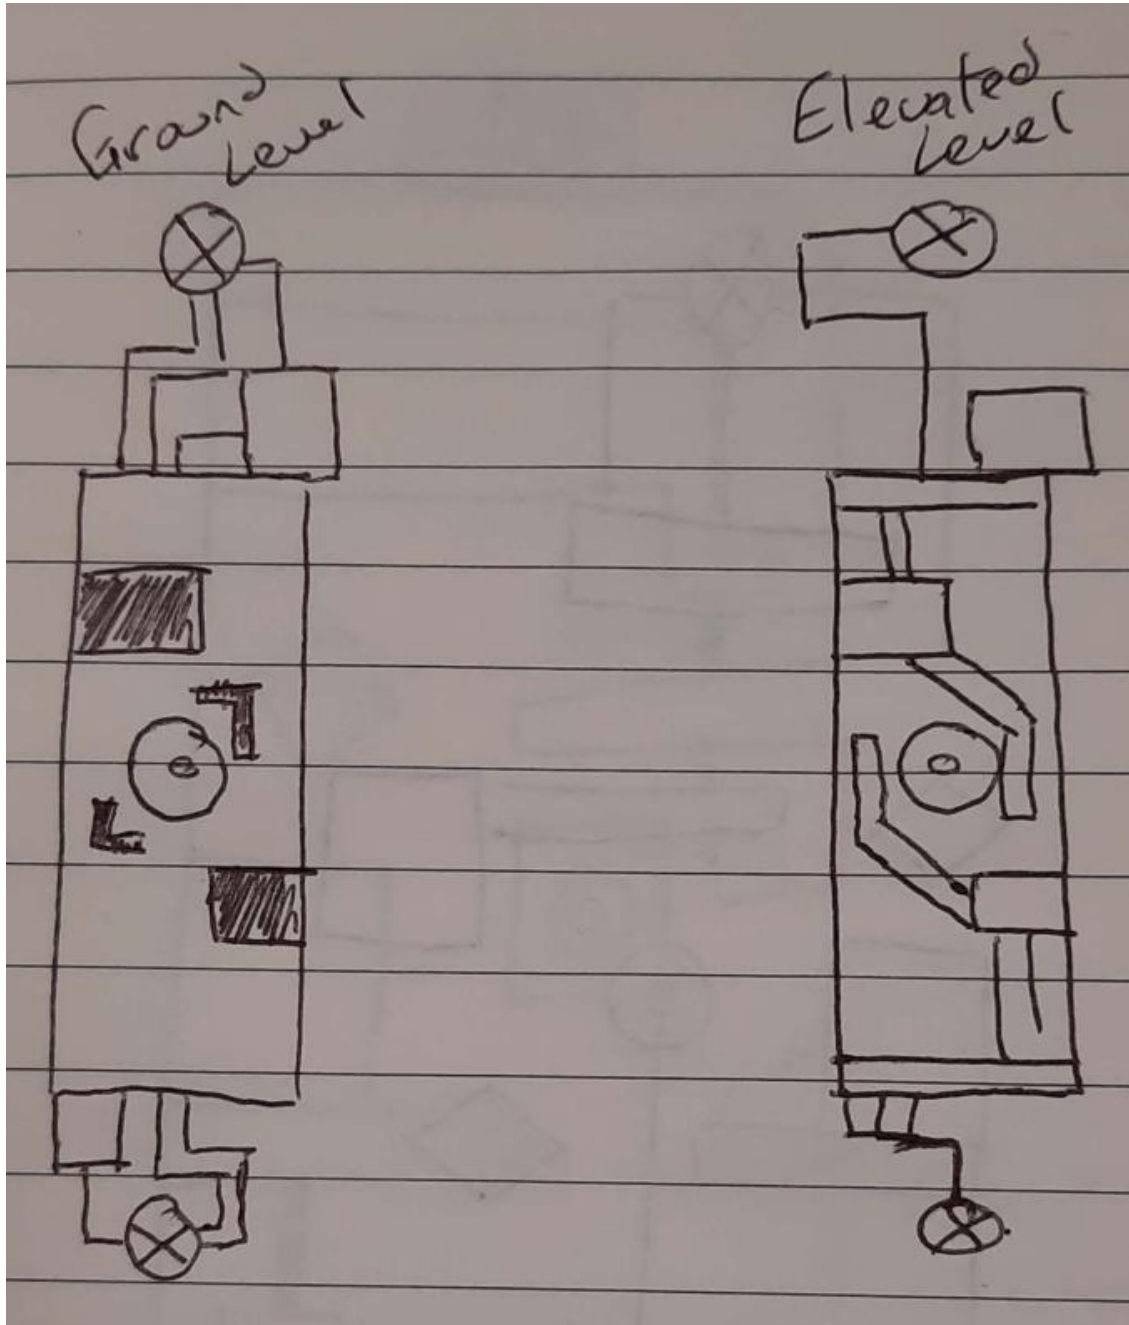 Ground
Level
Elevated
Level